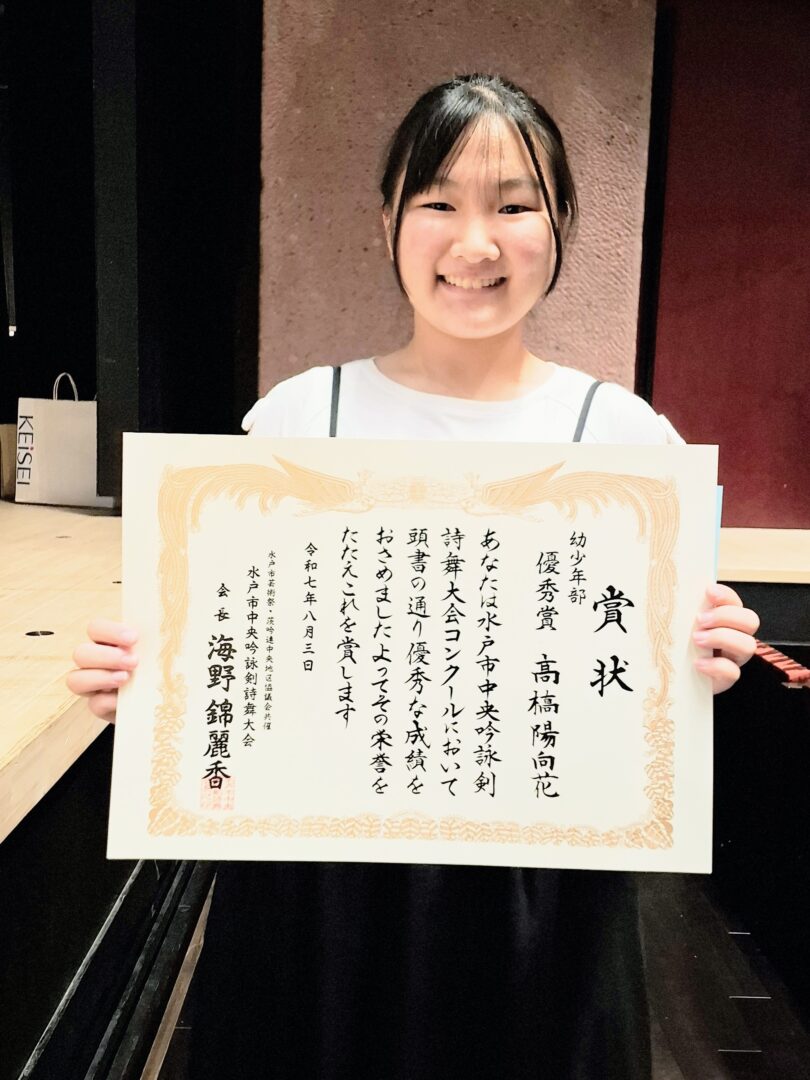 賞状
幼少年部
優秀賞 髙槗陽向花
あなたは水戸市中央吟詠剣
詩舞大会コンクールにおいて
頭書の通り優秀な成績を
おさめましたよってその栄誉を
たたえこれを賞します
令和七年八月三日
水戸市芸術祭・茨吟連中央地区協議会共催
水戸市中央吟詠剣詩舞大会
会長 海野錦麗香
KEiSEI